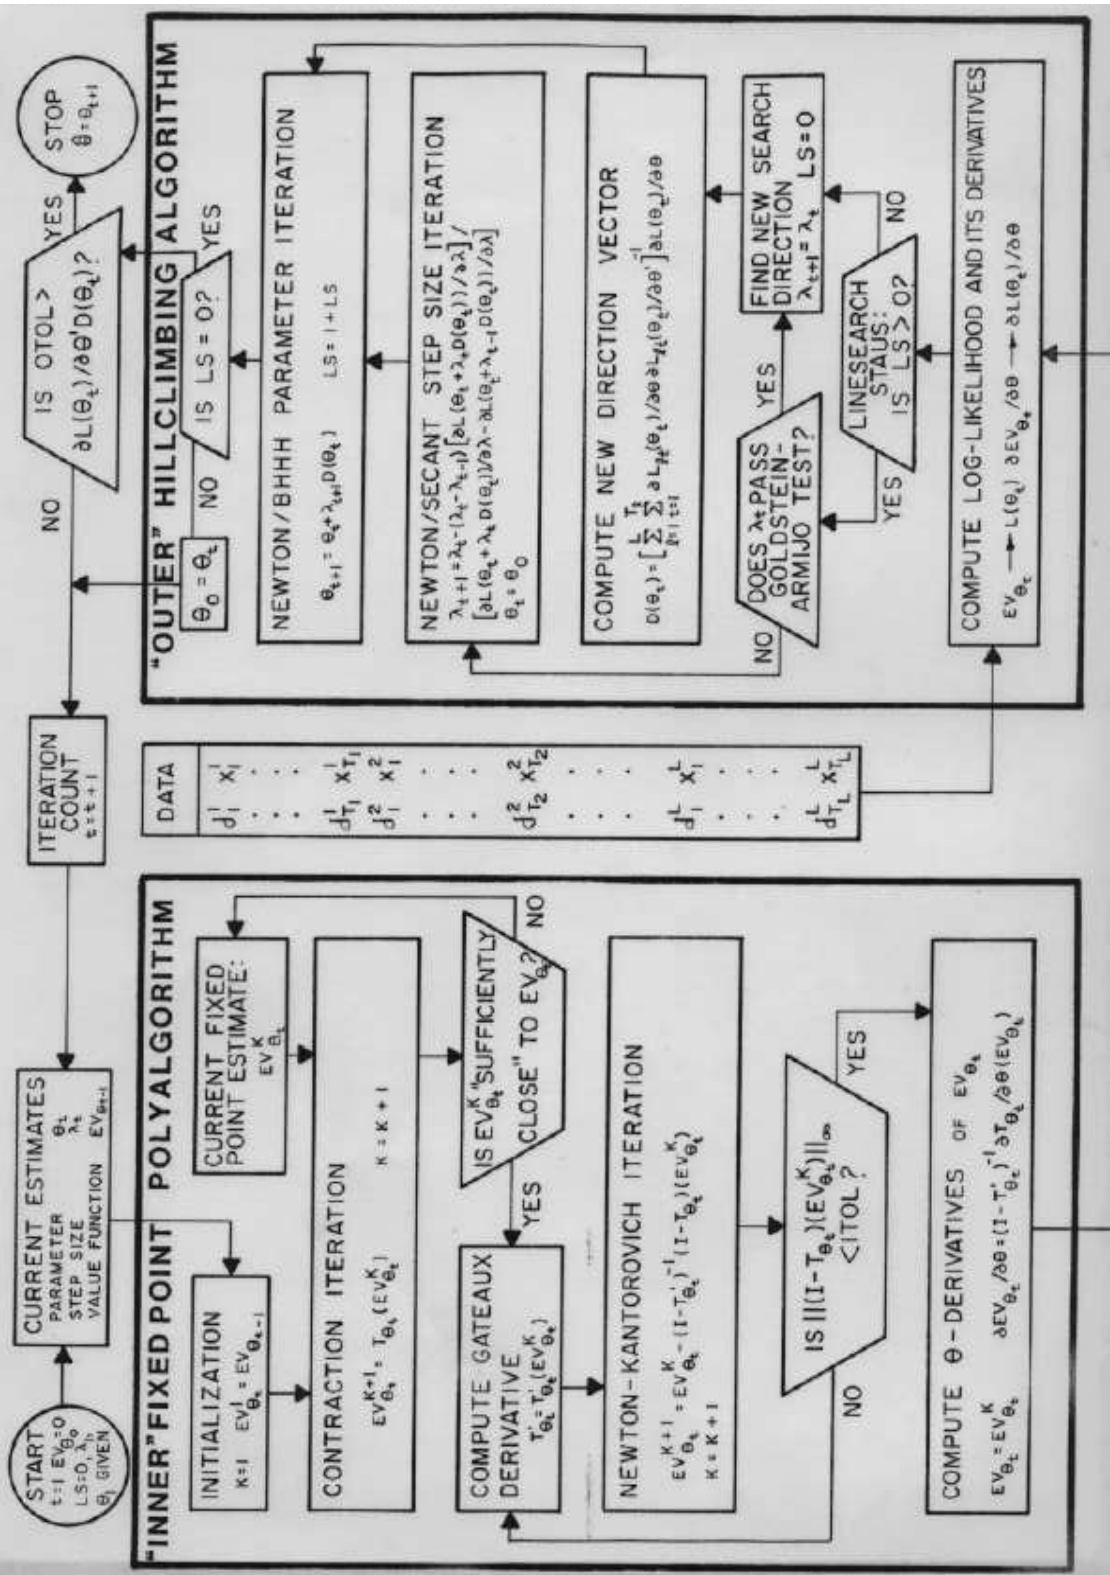 START
t=1 EV_θ₀=0
LS=0, λ₁,
θ₁ GIVEN
CURRENT ESTIMATES
PARAMETER θ_t
STEP SIZE λ_t
VALUE FUNCTION EV_θt-1
ITERATION
COUNT
t = t + 1
NO
IS OTOL >
∂L(θ_t)/∂θ'D(θ_t)?
YES
STOP
θ̂ = θ_t+1
"INNER" FIXED POINT POLYALGORITHM
INITIALIZATION
K=1 EV¹_θt = EV_θt-1
CURRENT FIXED
POINT ESTIMATE:
EV^K_θt
CONTRACTION ITERATION
EV^K+1_θt = T_θt (EV^K_θt) K = K + 1
IS EV^K_θt "SUFFICIENTLY
CLOSE" TO EV_θt?
NO
YES
COMPUTE GATEAUX
DERIVATIVE
T'_θt = T'_θt (EV^K_θt)
NEWTON-KANTOROVICH ITERATION
EV^K+1_θt = EV^K_θt - (I-T'_θt)⁻¹ (I-T_θt)(EV^K_θt)
K = K + 1
IS ||(I-T_θt)(EV^K_θt)||∞
<ITOL?
NO
YES
COMPUTE θ-DERIVATIVES OF EV_θt
EV_θt = EV^K_θt ∂EV_θt/∂θ = (I-T'_θt)⁻¹ ∂T_θt/∂θ(EV_θt)
DATA
d¹₁ x¹₁
. .
. .
. .
d¹_T₁ x¹_T₁
d²₁ x²₁
. .
. .
. .
d²_T₂ x²_T₂
. .
. .
. .
d^L₁ x^L₁
. .
. .
. .
d^L_T_L x^L_T_L
"OUTER" HILLCLIMBING ALGORITHM
θ₀ = θ_t
NO
IS LS = 0?
YES
NEWTON/BHHH PARAMETER ITERATION
θ_t+1 = θ_t + λ_t+1 D(θ_t) LS = 1 + LS
NEWTON/SECANT STEP SIZE ITERATION
λ_t+1 = λ_t - (λ_t - λ_t-1)[∂L(θ_t + λ_t D(θ_t))/∂λ] /
[∂L(θ_t + λ_t D(θ_t))/∂λ - ∂L(θ_t + λ_t-1 D(θ_t))/∂λ]
θ_t = θ₀
COMPUTE NEW DIRECTION VECTOR
D(θ_t) = [Σ^L_ℓ=1 Σ^T_ℓ_t=1 ∂L_ℓt(θ_t)/∂θ ∂L_ℓt(θ_t)/∂θ']⁻¹ ∂L(θ_t)/∂θ
NO
DOES λ_t PASS
GOLDSTEIN-
ARMIJO TEST?
YES
FIND NEW SEARCH
DIRECTION
λ_t+1 = λ_t LS = 0
YES
LINESEARCH
STAUS:
IS LS > 0?
NO
COMPUTE LOG-LIKELIHOOD AND ITS DERIVATIVES
EV_θt → L(θ_t) ∂EV_θt/∂θ → ∂L(θ_t)/∂θ